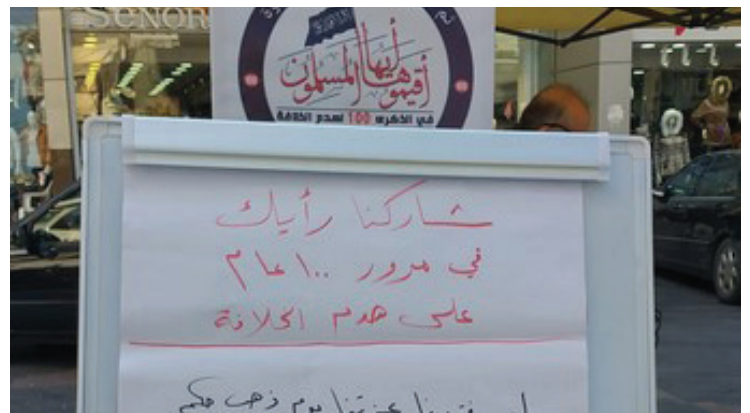 SENOR
أقيموها أيها المسلمون
في الذكرى 100 لهدم الخلافة
شاركنا رأيك
في مرور ١٠٠ عام
على هدم الخلافة
عزتنا يوم ذهب حكم